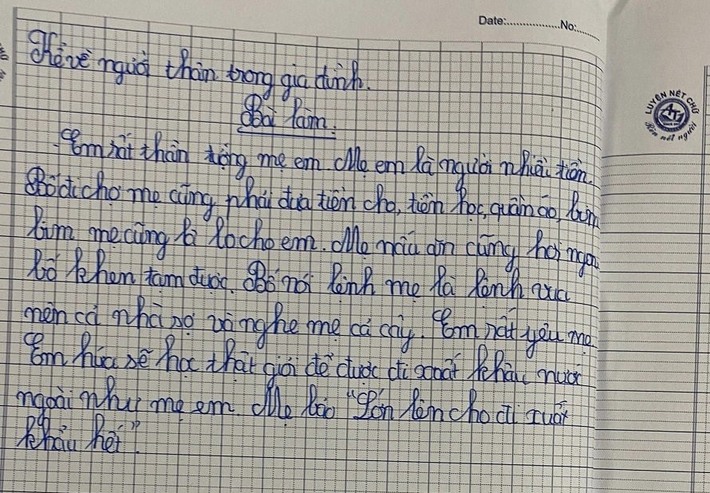 Date:...............No:......
Kể về người thân trong gia đình.
Bài làm.
LUYỆN NÉT CHỮ
Rèn nết người
Em rất thần tượng mẹ em. Mẹ em là người nhiều tiền.
Bố đi chợ mẹ cũng phải đưa tiền cho, tiền học, quần áo, bỉm
bỉm mẹ cũng là lo cho em. Mẹ nấu ăn cũng hơi ngon
bố khen tạm được. Bố nói lệnh mẹ là lệnh vua
nên cả nhà sợ và nghe mẹ cả cây. Em rất yêu mẹ.
Em hứa sẽ học thật giỏi để được đi xoất khẩu nước
ngoài như mẹ em. Mẹ bảo "Lớn lên cho đi xuất
khẩu hết".